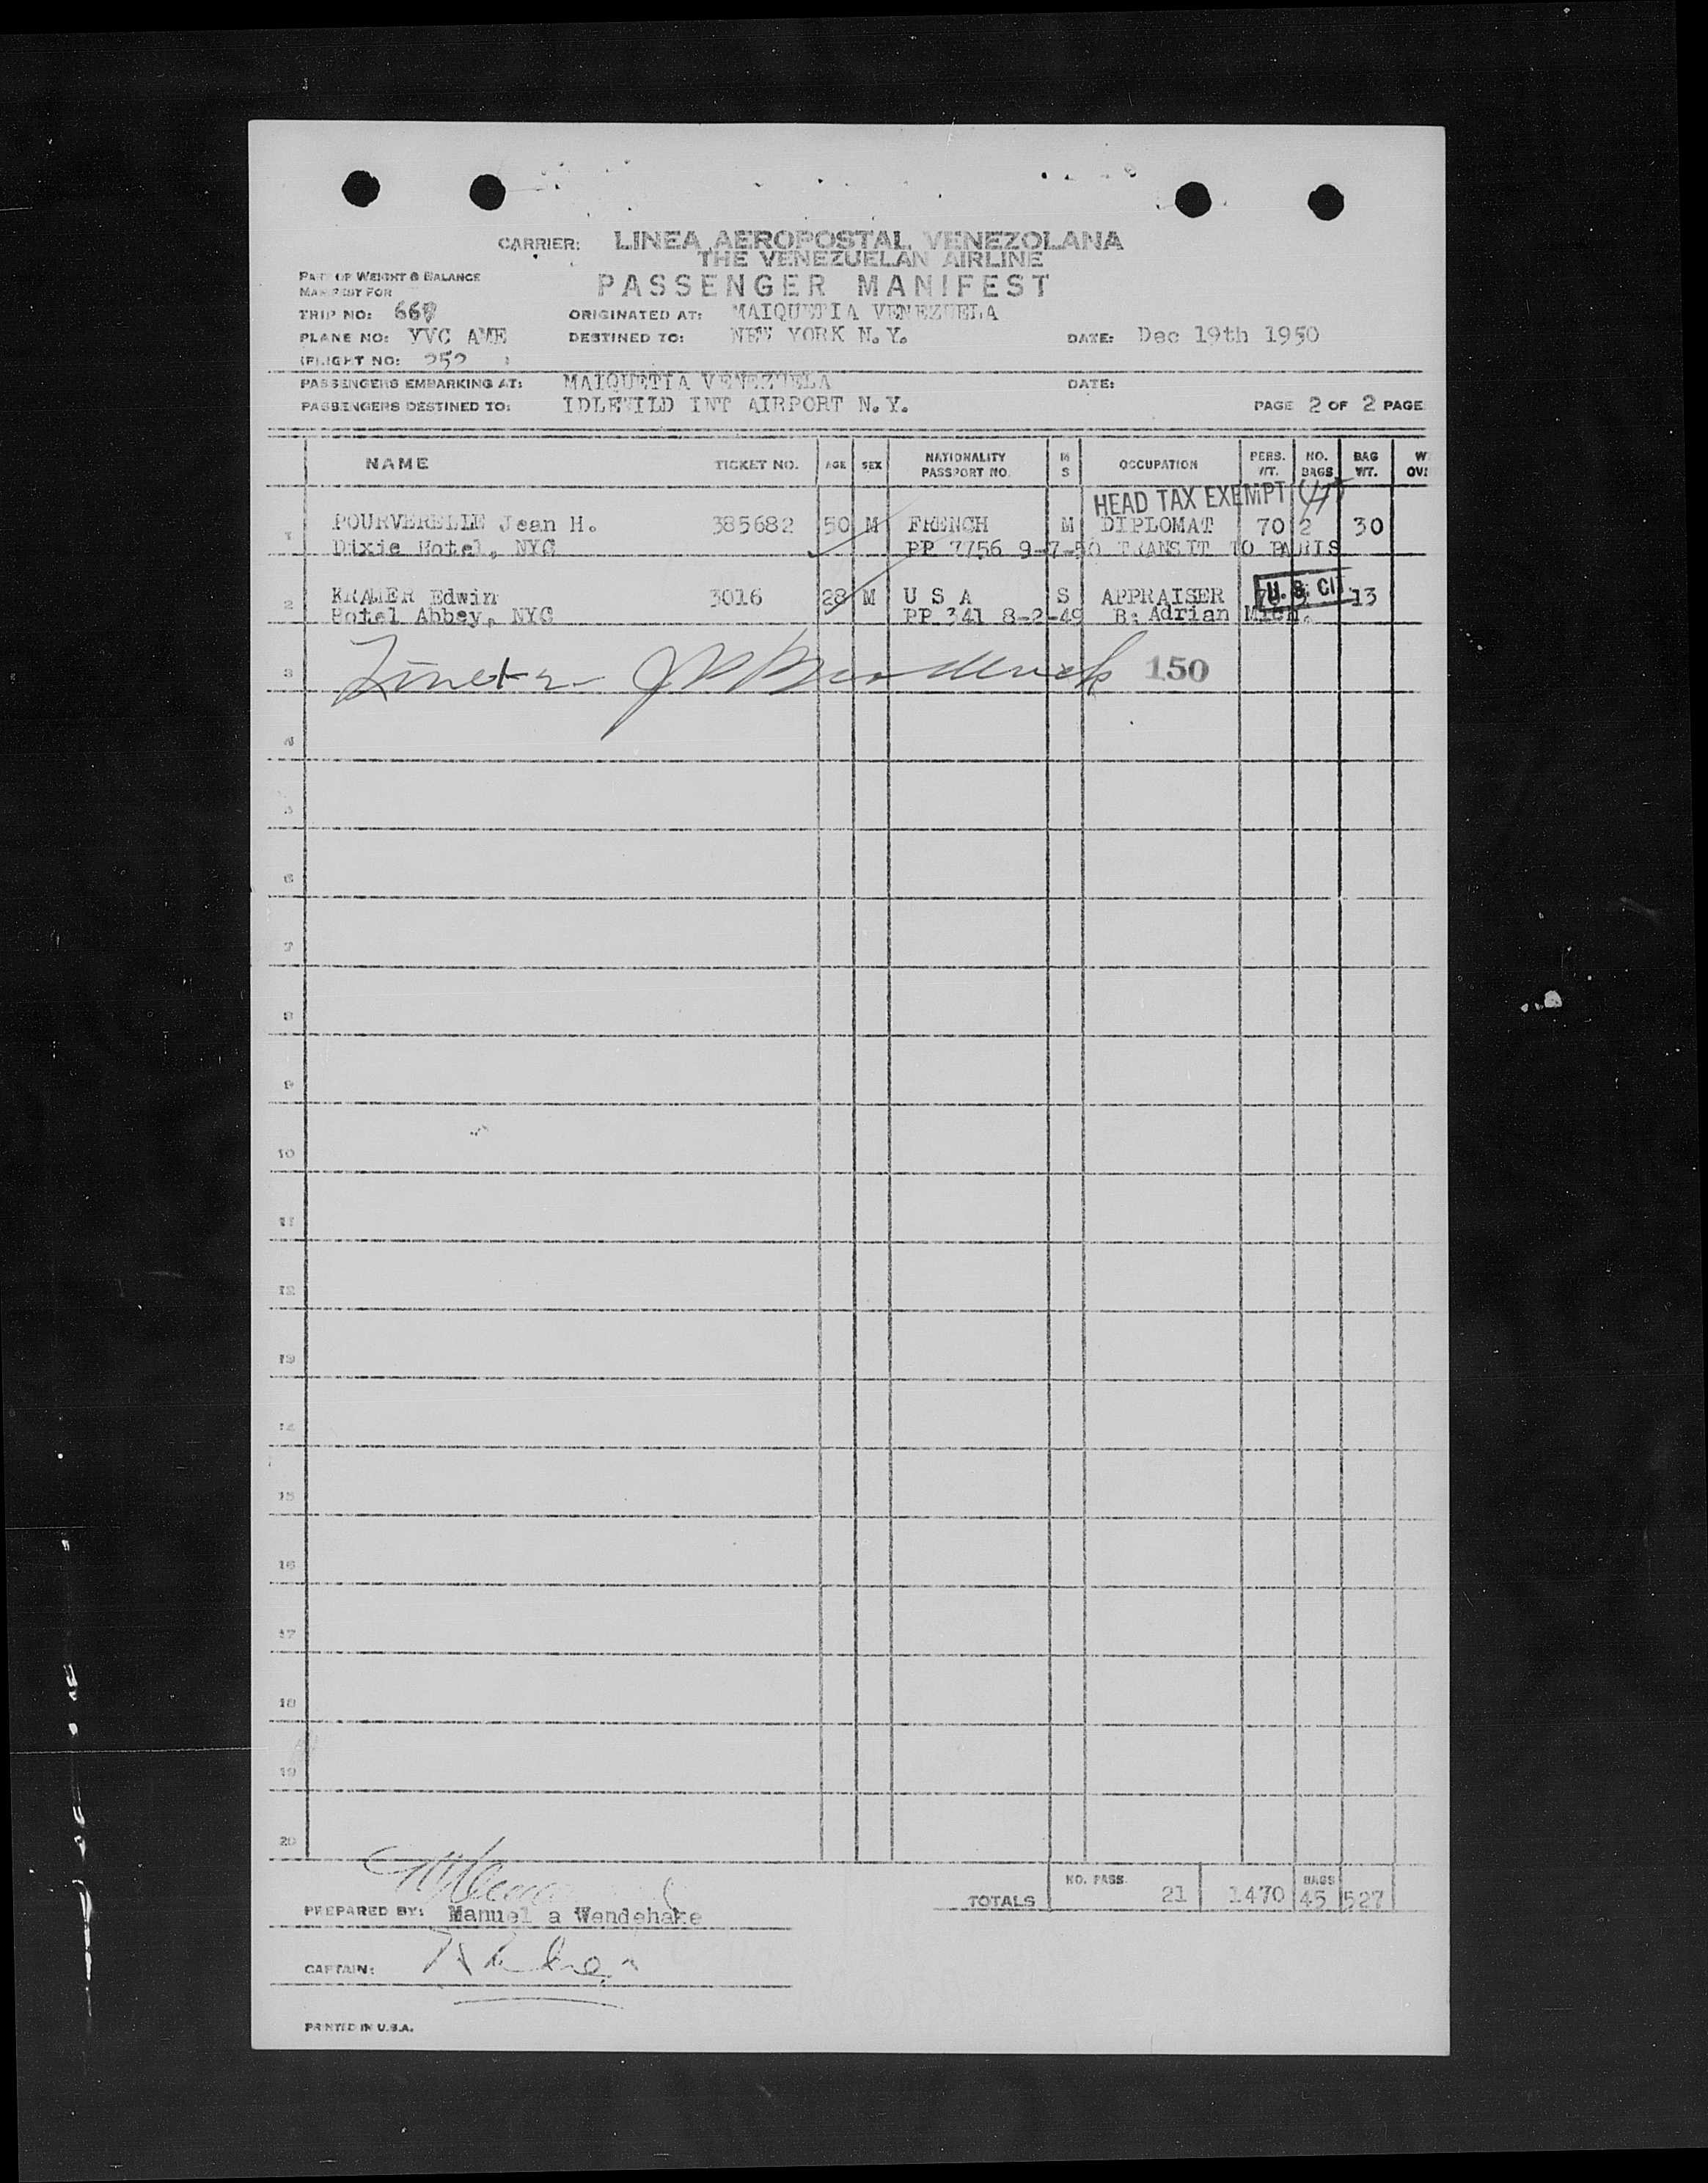 CARRIER: LINEA AEROPOSTAL VENEZOLANA
THE VENEZUELAN AIRLINE
PART OF WEIGHT & BALANCE
MANIFEST FOR
PASSENGER MANIFEST
TRIP NO: 668 ORIGINATED AT: MAIQUETIA VENEZUELA
PLANE NO: YVC AME DESTINED TO: NEW YORK N.Y. DATE: Dec 19th 1950
(FLIGHT NO: 252 )
PASSENGERS EMBARKING AT: MAIQUETIA VENEZUELA DATE:
PASSENGERS DESTINED TO: IDLEWILD INT AIRPORT N.Y. PAGE 2 OF 2 PAGE
NAME TICKET NO. AGE SEX NATIONALITY PASSPORT NO. M S OCCUPATION PERS. WT. NO. BAGS BAG WT. W OV
HEAD TAX EXEMPT
1 POURVERELLE Jean H. 385682 50 M FRENCH M DIPLOMAT 70 2 30
Dixie Hotel, NYC PP 7756 9-7-50 TRANSIT TO PARIS
U.S. CIT
2 KRAMER Edwin 3016 28 M U S A S APPRAISER 13
Hotel Abbey, NYC PP 341 8-2-49 B: Adrian Mich.
3 150
4
5
6
7
8
9
10
11
12
13
14
15
16
17
18
19
20
TOTALS NO. PASS. 21 1470 BAGS 45 527
PREPARED BY: Manuel a Wendehake
CAPTAIN:
PRINTED IN U.S.A.